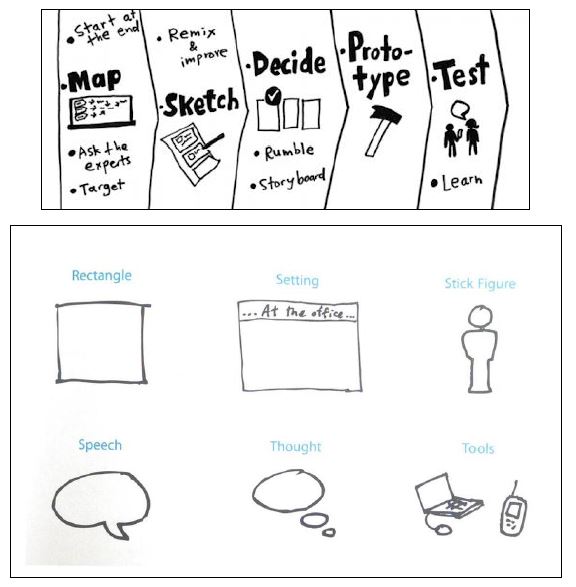 • Start at
the end
• Map
• Ask the
experts
• Target
• Remix
&
improve
• Sketch
• Decide
• Rumble
• Storyboard
• Proto-
type
• Test
• Learn
Rectangle
Setting
... At the office ...
Stick Figure
Speech
Thought
Tools